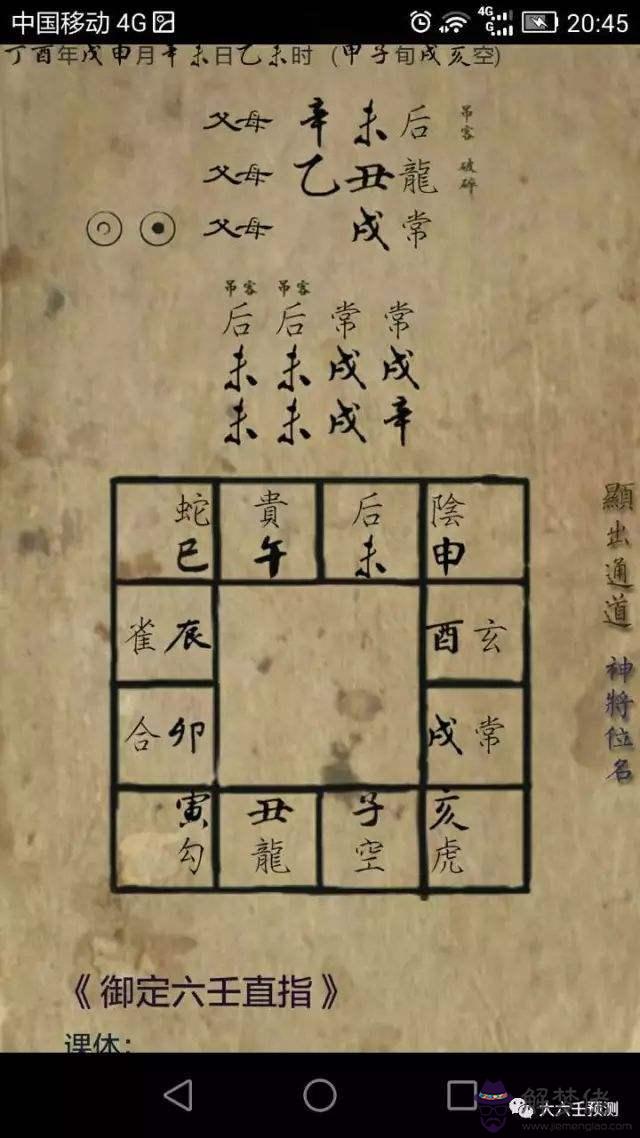 中国移动 4G 4G G 20:45
丁酉年戊申月辛未日乙未时 (甲子旬戌亥空)
父母 辛未后 吊客
父母 乙丑龍 破碎
父母 戌常
吊客 吊客
后后常常
未未戌戌
未未戌辛
蛇貴后陰
巳午未申
雀辰 酉玄
合卯 戌常
寅丑子亥
勾龍空虎
顯出通道 神將位名
《御定六壬直指》
课体:
大六壬预测
解梦佬
www.jiemenglao.com